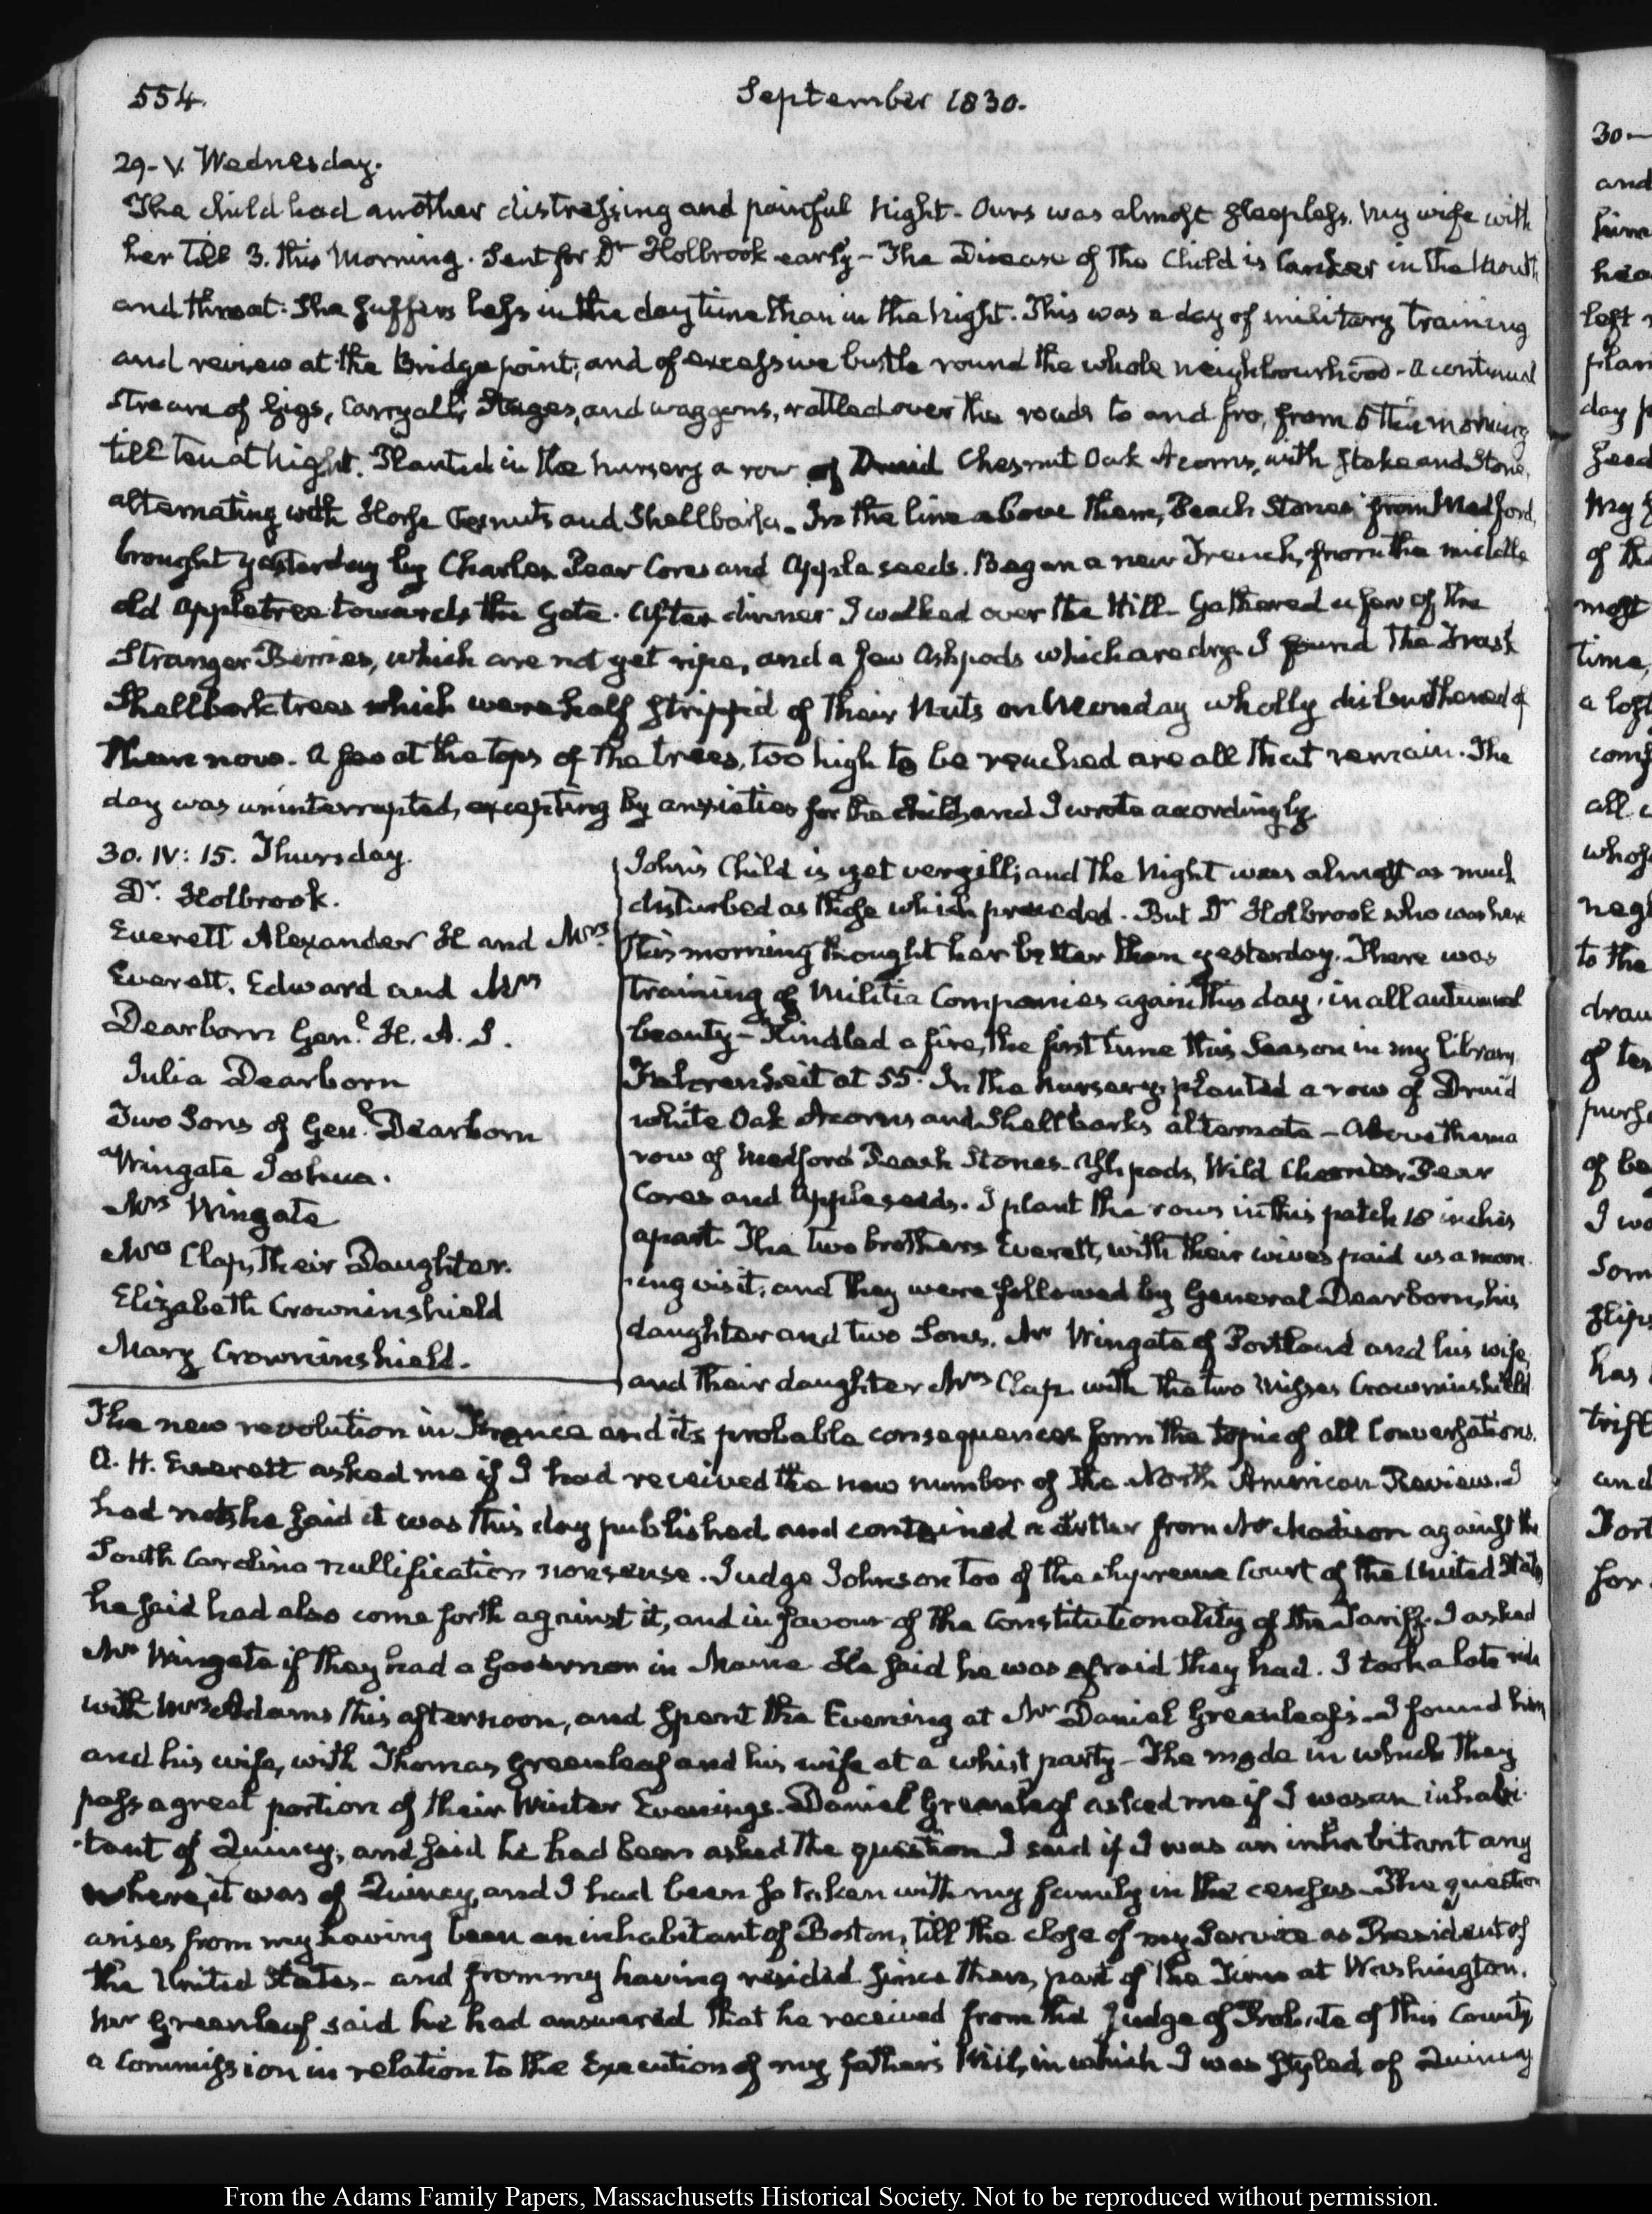 554.
September 1830.
29-V. Wednesday.
The child had another distressing and painful Night- Ours was almost sleepless. My wife with
her till 3. this Morning. Sent for Dr Holbrook early- The Disease of the Child is Canker in the Mouth
and throat. She suffers less in the day time than in the Night. This was a day of military training
and review at the Bridge point; and of excessive bustle round the whole neighbourhood- a continual
stream of Gigs, Carryalls, Stages, and waggons, rattled over the roads to and fro, from 5 this morning
till ten at Night. Planted in the nursery a row of Druid Chesnut Oak Acorns, with Stake and Stone,
alternating with Horse Chesnuts and Shellbarks- In the line above them, Peach Stones from Medford,
brought yesterday by Charles Pear Cores and Apple seeds. Began a new Trench, from the middle
old Appletree towards the Gate. After dinner I walked over the Hill- Gathered a few of the
Stranger Berries, which are not yet ripe, and a few Ashpods which are dry. I found the Trask
Shellbark trees which were half stripp'd of their Nuts on Monday wholly disburthened of
them now. A few at the tops of the trees, too high to be reached are all that remain. The
day was uninterrupted, excepting by anxieties for the child, and I wrote accordingly.
30. IV: 15. Thursday.
Dr. Holbrook.
Everett Alexander H and Mrs.
Everett. Edward and Mrs
Dearborn Genl. H. A. S.
Julia Dearborn
Two Sons of Genl. Dearborn
Wingate Joshua.
Mrs Wingate
Mrs Clap, their Daughter.
Elizabeth Crowninshield
Mary Crowninshield.
John's Child is yet very ill; and the Night was almost as much
disturbed as those which preceded. But Dr Holbrook who was here
this morning thought her better than yesterday. There was
training of Militia Companies again this day, in all autumnal
beauty- Kindled a fire, the first time this Season in my Library
Fahrenheit at 55. In the Nursery, planted a row of Druid
white Oak Acorns and Shellbarks alternate- Above them a
row of Medford Peach Stones- Ash pods, Wild Cherries, Pear
Cores and Apple seeds. I plant the rows in this patch 18 inches
apart. The two brothers Everett, with their wives paid us a morn-
ing visit; and they were followed by General Dearborn, his
daughter and two Sons. Mr Wingate of Portland and his wife,
and their daughter Mrs Clap with the two Misses Crowninshield
The new revolution in France and its probable consequences form the topic of all Conversations.
A. H. Everett asked me if I had received the new number of the North American Review. I
had not- he said it was this day published and contained a Letter from Mr Madison against the
South Carolina nullification nonsense. Judge Johnson too of the Supreme Court of the United States
he said had also come forth against it, and in favour of the Constitutionality of the Tariff. I asked
Mr Wingate if they had a Governor in Maine He said he was afraid they had. I took a late ride
with Mrs Adams this afternoon, and spent the Evening at Mr Daniel Greenleaf's- I found him
and his wife, with Thomas Greenleaf and his wife at a whist party- The mode in which they
pass a great portion of their Winter Evenings. Daniel Greenleaf asked me if I was an inhabi-
tant of Quincy; and said he had been asked the question I said if I was an inhabitant any
where, it was of Quincy, and I had been so taken with my family in the census- The question
arises from my having been an inhabitant of Boston, till the close of my Service as President of
the United States- and from my having resided since then, part of the Time at Washington.
Mr Greenleaf said he had answered that he received from the Judge of Probate of this County
a Commission in relation to the Execution of my father's Will, in which I was styled, of Quincy
From the Adams Family Papers, Massachusetts Historical Society. Not to be reproduced without permission.